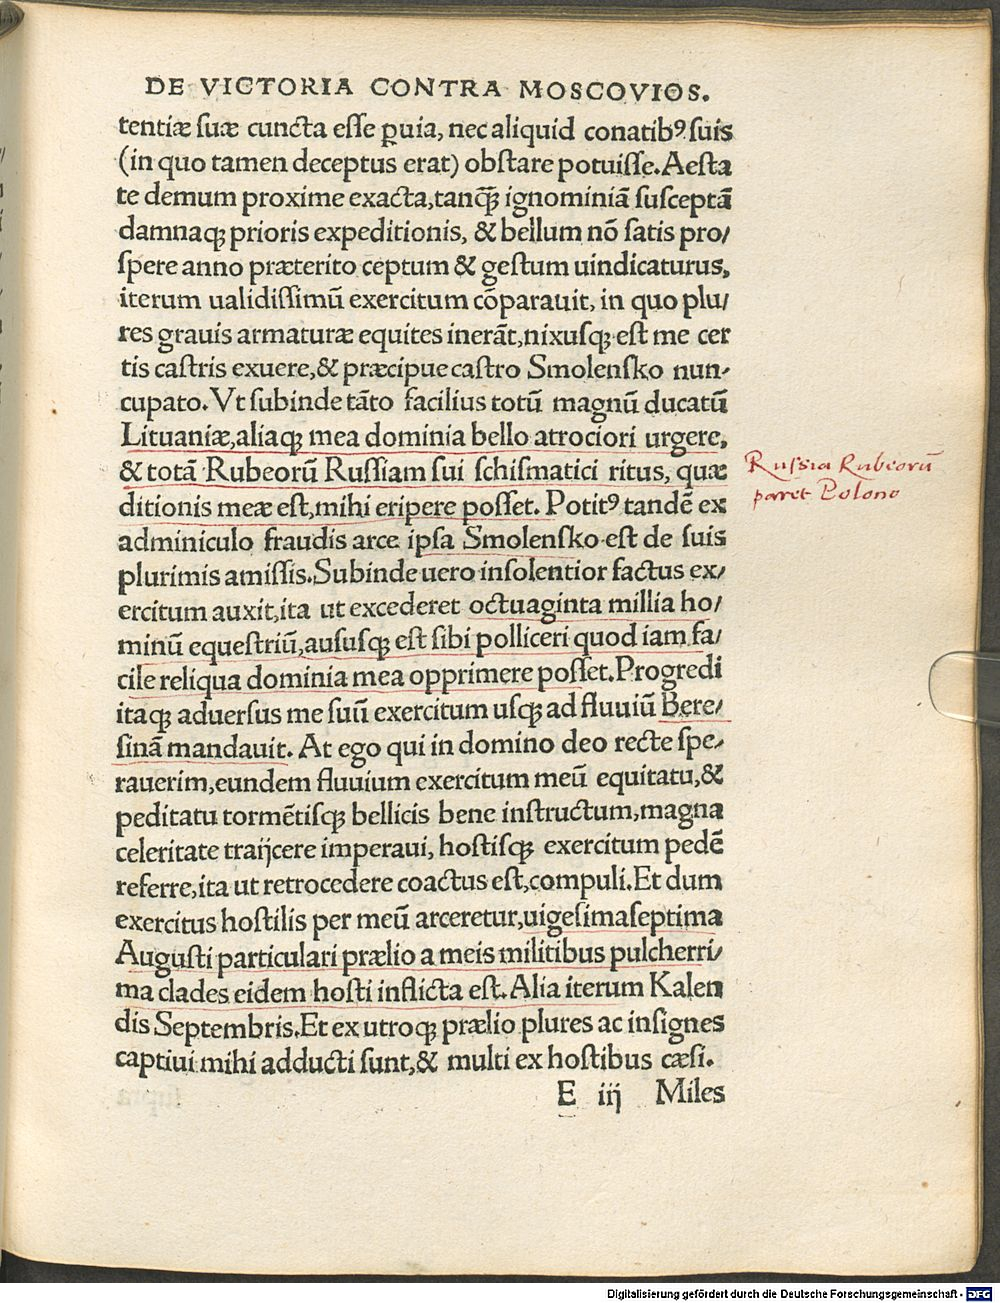 DE VICTORIA CONTRA MOSCOVIOS.
tentiæ ſuæ cuncta eſſe ꝑuia, nec aliquid conatibꝰ ſuis
(in quo tamen deceptus erat) obſtare potuiſſe. Aeſta
te demum proxime exacta, tanꝗ̃ ignominiã ſuſceptã
damnaqꝫ prioris expeditionis, & bellum nõ ſatis pro/
ſpere anno præterito ceptum & geſtum uindicaturus,
iterum ualidiſſimũ exercitum cõparauit, in quo plu/
res grauis armaturæ equites inerãt, nixuſqꝫ eſt me cer
tis caſtris exuere, & præcipue caſtro Smolenſko nun-
cupato. Vt ſubinde tãto facilius totũ magnũ ducatũ
Lituaniæ, aliaqꝫ mea dominia bello atrociori urgere,
& totã Rubeorũ Ruſſiam ſui ſchiſmatici ritus, quæ
ditionis meæ eſt, mihi eripere poſſet. Potitꝰ tandẽ ex
adminiculo fraudis arce ipſa Smolenſko eſt de ſuis
plurimis amiſſis. Subinde uero inſolentior factus ex/
ercitum auxit, ita ut excederet octuaginta millia ho/
minũ equeſtriũ, auſuſqꝫ eſt ſibi polliceri quod iam fa/
cile reliqua dominia mea opprimere poſſet. Progredi
itaqꝫ aduerſus me ſuũ exercitum uſqꝫ ad fluuiũ Bere/
ſinã mandauit. At ego qui in domino deo recte ſpe-
rauerim, eundem fluuium exercitum meũ equitatu, &
peditatu tormẽtiſqꝫ bellicis bene inſtructum, magna
celeritate traijcere imperaui, hoſtiſqꝫ exercitum pedẽ
referre, ita ut retrocedere coactus eſt, compuli. Et dum
exercitus hoſtilis per meũ arceretur, uigeſimaſeptima
Auguſti particulari prælio a meis militibus pulcherri/
ma clades eidem hoſti inflicta eſt. Alia iterum Kalen
dis Septembris. Et ex utroqꝫ prælio plures ac inſignes
captiui mihi adducti ſunt, & multi ex hoſtibus cæſi.
E iij Miles
Ruſsia Rubeorũ
paret Polono
Digitalisierung gefördert durch die Deutsche Forschungsgemeinschaft - DFG